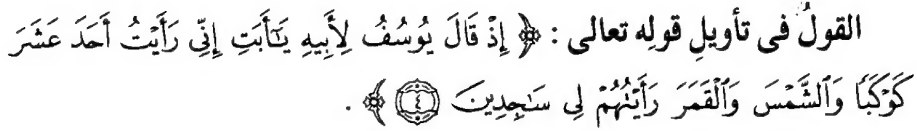 القولُ فى تأويلِ قولِه تعالى : ﴿ إِذْ قَالَ يُوسُفُ لِأَبِيهِ يَٰٓأَبَتِ إِنِّى رَأَيْتُ أَحَدَ عَشَرَ
كَوْكَبًا وَٱلشَّمْسَ وَٱلْقَمَرَ رَأَيْتُهُمْ لِى سَٰجِدِينَ ﴿٤﴾ ﴾ .